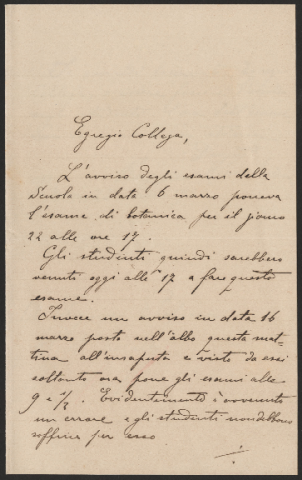 Egregio Collega,
L'avviso degli esami della
Scuola in data 6 marzo poneva
l'esame di botanica per il giorno
22 alle ore 17.
Gli studenti quindi sarebbero
venuti oggi alle 17 a fare questo
esame.
Invece un avviso in data 16
marzo posto nell'albo questa mat-
tina all'insaputa e visto da essi
soltanto ora pone gli esami alle
9 e 1/2. Evidentemente è avvenuto
un errore e gli studenti non debbono
soffrire per esso.